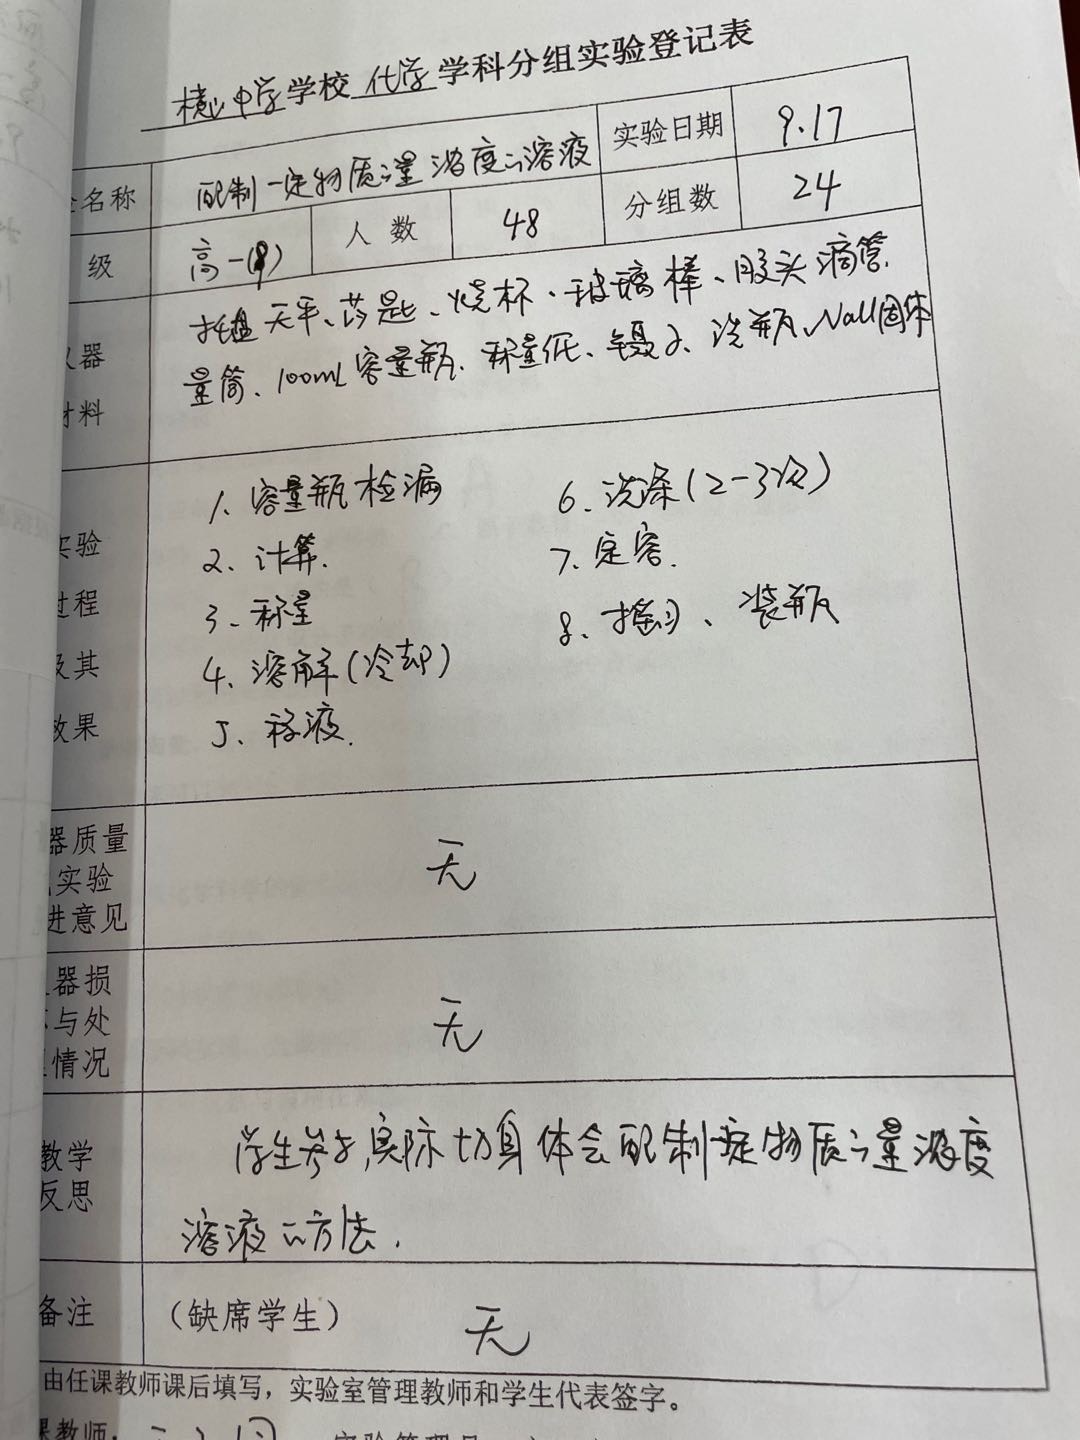 中学学校 化学 学科分组实验登记表
名称 配制一定物质之量浓度的溶液 实验日期 9.17
级 高一(9) 人数 48 分组数 24
器 托盘天平、药匙、烧杯、玻璃棒、胶头滴管、
材料 量筒、100mL容量瓶、称量纸、镊子、洗瓶、NaCl固体
1、容量瓶检漏 6、洗涤(2-3次)
实验 2、计算. 7、定容.
过程 3、称量 8、摇匀、装瓶
及其 4、溶解(冷却)
效果 5、移液.
器质量
实验 无
进意见
器损
与处 无
情况
教学 学生参与,实际切身体会配制一定物质之量浓度
反思 溶液的方法.
备注 (缺席学生) 无
由任课教师课后填写，实验室管理教师和学生代表签字。
课教师：